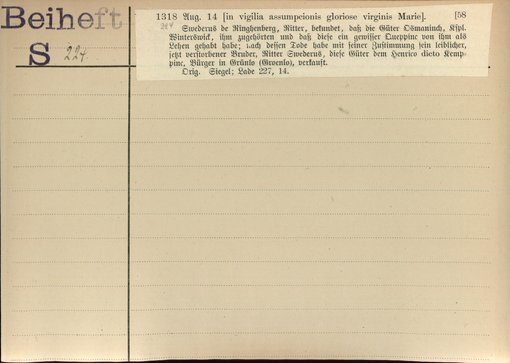 Beiheft
S 224
1318 Aug. 14 [in vigilia assumpcionis gloriose virginis Marie]. [58
Swederus de Ringhenberg, Ritter, bekundet, daß die Güter Osmaninch, Kspl.
Winterswick, ihm zugehörten und daß diese ein gewisser Queppinc von ihm als
Lehen gehabt habe; nach dessen Tode habe mit seiner Zustimmung sein leiblicher,
jetzt verstorbener Bruder, Ritter Swederus, diese Güter dem Henrico dicto Kemp-
pinc, Bürger in Grünlo (Groenlo), verkauft.
Orig. Siegel; Lade 227, 14.